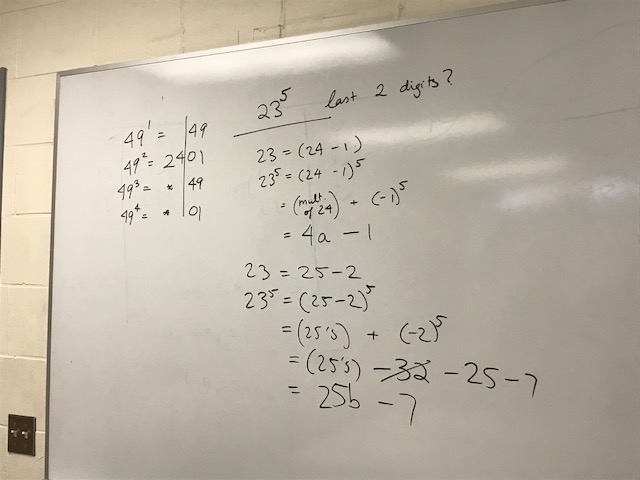 49¹ = 49
49² = 2401
49³ = * 49
49⁴ = * 01
23⁵ last 2 digits?
23 = (24 - 1)
23⁵ = (24 - 1)⁵
= (mult. of 24) + (-1)⁵
= 4a - 1
23 = 25 - 2
23⁵ = (25 - 2)⁵
= (25's) + (-2)⁵
= (25's) - 32 - 25 - 7
= 25b - 7